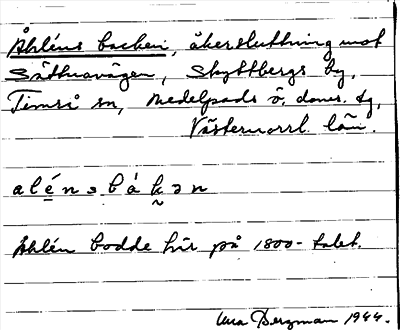 Åhléns backen, åkersluttning mot
Sättnavägen, Skyttbergs by,
Timrå sn, Medelpads ö. doms. tg,
Västernorrl. län.
alénəbákən
Åhlén bodde här på 1800-talet.
Bergman 1944.